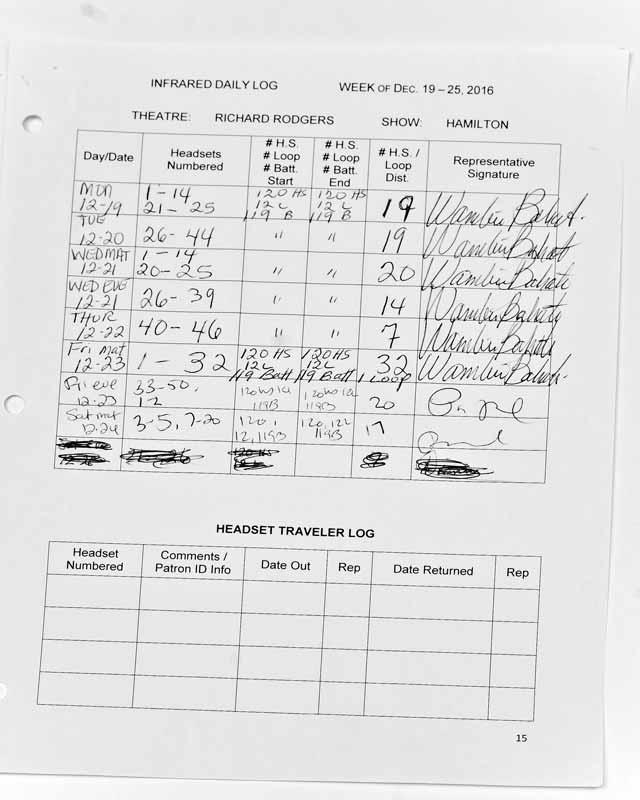 INFRARED DAILY LOG WEEK OF DEC. 19 – 25, 2016
THEATRE: RICHARD RODGERS SHOW: HAMILTON
Day/Date
Headsets
Numbered
# H.S.
# Loop
# Batt.
Start
# H.S.
# Loop
# Batt.
End
# H.S. /
Loop
Dist.
Representative
Signature
MON
12-19
1 - 14
21 - 25
120 HS
12 L
119 B
120 HS
12 L
119 B
19
TUE
12-20
26 - 44
"
"
19
WED MAT
12-21
1 - 14
20 - 25
"
"
20
WED EVE
12-21
26 - 39
"
"
14
THUR
12-22
40 - 46
"
"
7
Fri mat
12-23
1 - 32
120 HS
12L
119 Batt
120 HS
12L
119 Batt
32
1 Loop
Fri eve
12-23
33-50,
1-2
119B
119B
20
Sat mat
12-24
3-5, 7-20
120,
12, 119B
120, 12L
119B
17
HEADSET TRAVELER LOG
Headset
Numbered
Comments /
Patron ID Info
Date Out
Rep
Date Returned
Rep
15